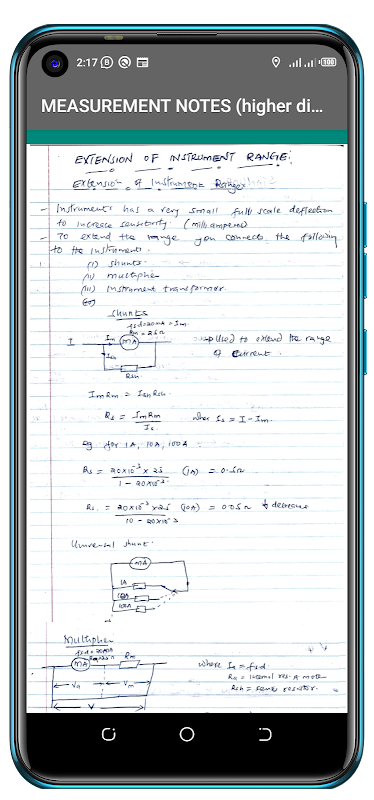 2:17
100
MEASUREMENT NOTES (higher di...
EXTENSION OF INSTRUMENT RANGE:
Extension of Instrument Range
- Instruments has a very small full scale deflection
to increase sensitivity. (milliamperes)
- To extend the range you connect the following
to the instruments.
(i) shunts.
(ii) multiplier
(iii) Instrument transformer.
Shunts
fsd=20mA = Im
Rm = 25Ω
I
Im
mA
Ish
Rsh
Used to extend the range
of current.
ImRm = Ish Rsh
Rs = ImRm / Is
where Is = I - Im
Eg for 1A, 10A, 100A
Rs = 20x10⁻³ x 25 / 1 - 20x10⁻³ (1A) = 0.5Ω
Rs = 20x10⁻³ x25 / 10 - 20x10⁻³ (10A) = 0.05Ω decrease
Universal shunt.
mA
1A
10A
100A
Multiplier
fsd=20mA
mA
Rm
Va
Vm
V
where Is = fsd
Ra = internal res. A meter
Rsh = series resistor.